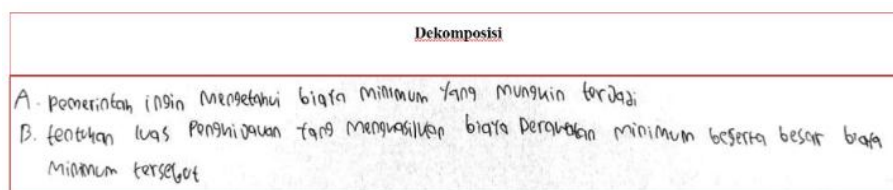 Dekomposisi
A. pemerintah ingin mengetahui biaya minimum yang mungkin terjadi
B. tentukan luas penghijauan yang menghasilkan biaya perawatan minimum beserta besar biaya
minimum tersebut